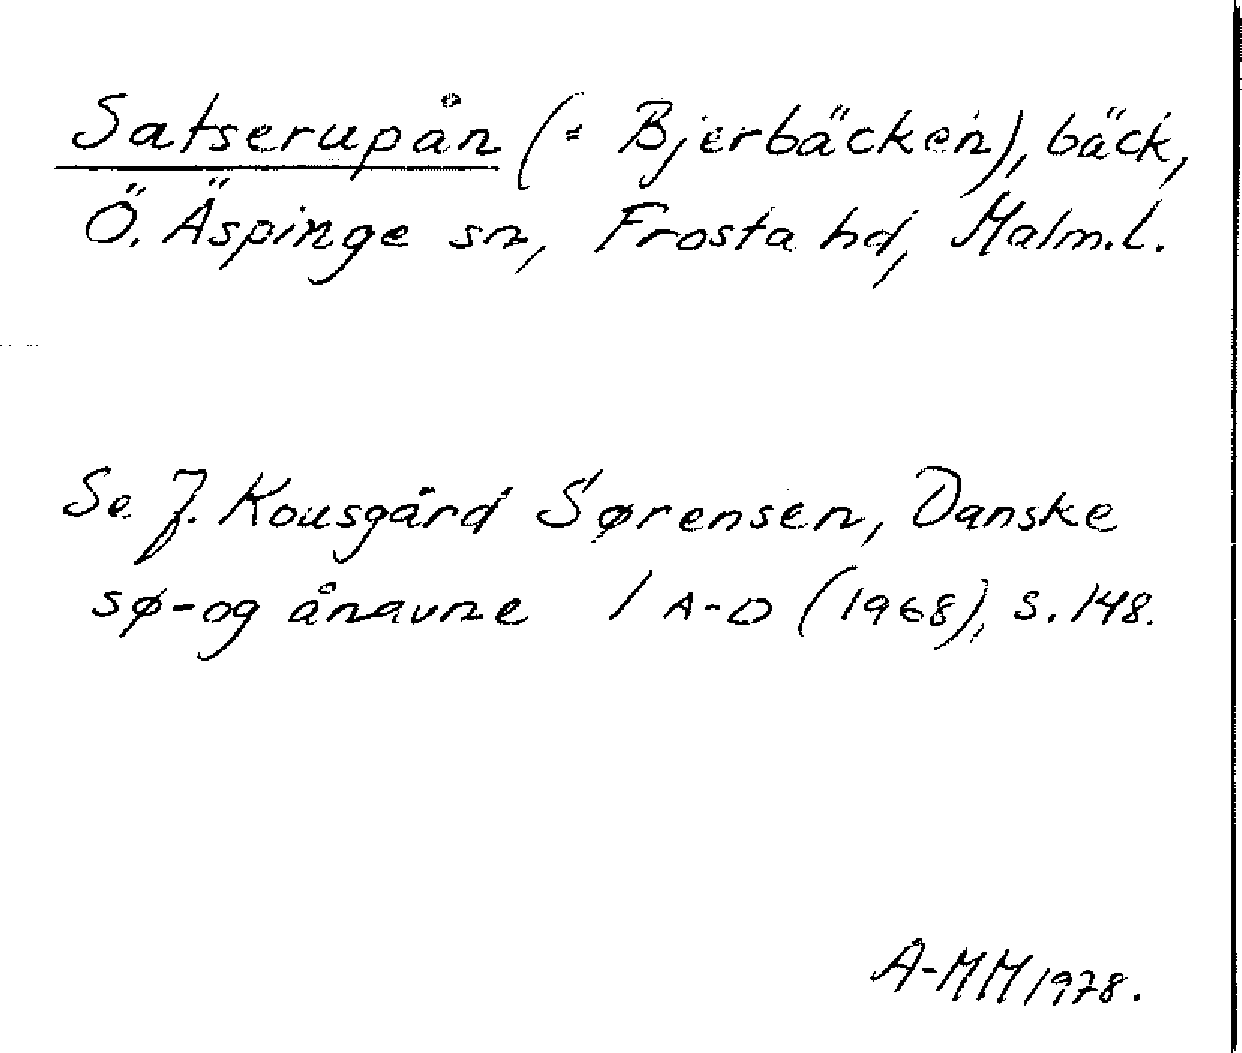 Satserupån (= Bjerbäcken), bäck,
Ö. Äspinge sn, Frosta hd, Malm.l.
Se J. Kousgård Sørensen, Danske
sø-og ånavne 1 A-D (1968), s. 148.
A-MM 1978.